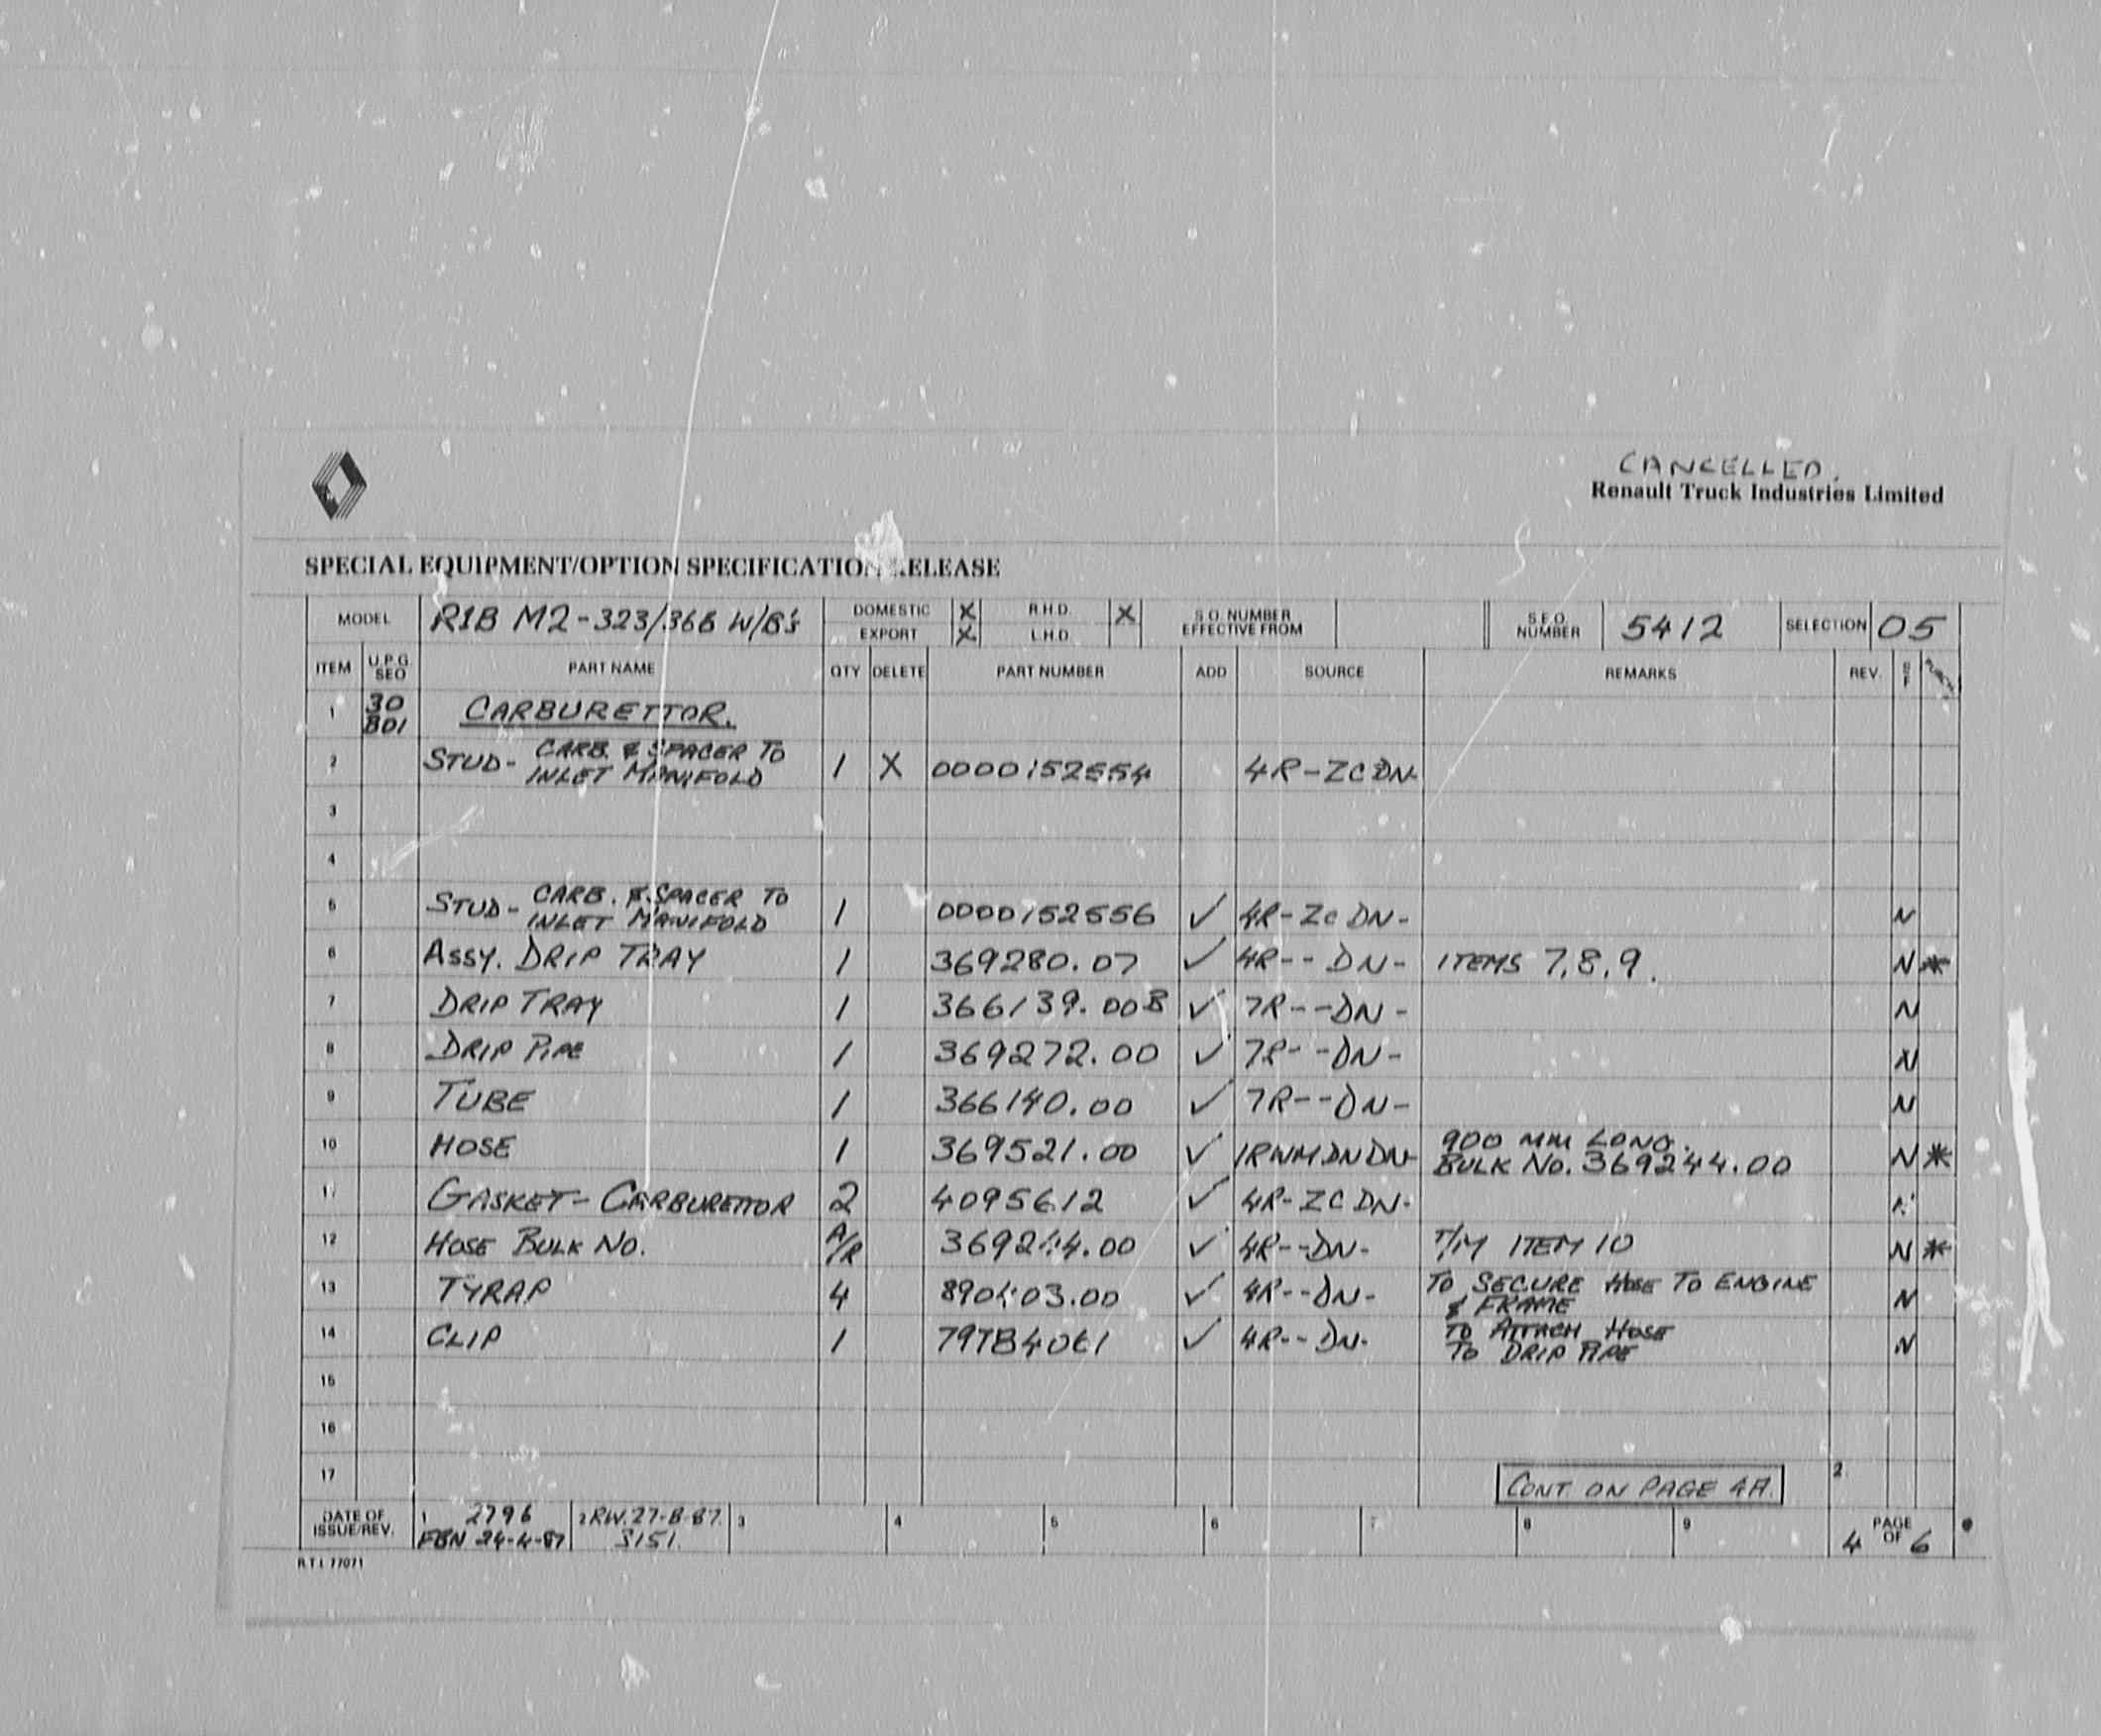 CANCELLED.
Renault Truck Industries Limited
SPECIAL EQUIPMENT/OPTION SPECIFICATION RELEASE
MODEL R1B M2-323/366 W/B's DOMESTIC X R.H.D. X S.O. NUMBER EFFECTIVE FROM S.E.O. NUMBER 5412 SELECTION 05
EXPORT X L.H.D.
ITEM U.P.G SEO PART NAME QTY DELETE PART NUMBER ADD SOURCE REMARKS REV.
1 30 B01 CARBURETTOR.
2 STUD- CARB. & SPACER TO INLET MANIFOLD 1 X 0000152554 4R-ZCDN-
3
4
5 STUD- CARB. & SPACER TO INLET MANIFOLD 1 0000152556 ✓ 4R-ZCDN- N
6 ASSY. DRIP TRAY 1 369280.07 ✓ 4R--DN- ITEMS 7,8,9. N *
7 DRIP TRAY 1 366139.00B ✓ 7R--DN- N
8 DRIP PIPE 1 369272.00 ✓ 7R--DN- N
9 TUBE 1 366140.00 ✓ 7R--DN- N
10 HOSE 1 369521.00 ✓ 1RWMDNDN- 900 MM LONG. N *
BULK NO. 369244.00
11 GASKET-CARBURETTOR 2 4095612 ✓ 4R-ZCDN- N
12 HOSE BULK NO. A/R 369244.00 ✓ 4R--DN- T/M ITEM 10 N *
13 TYRAP 4 890403.00 ✓ 4R--DN- TO SECURE HOSE TO ENGINE N
& FRAME
14 CLIP 1 79TB4061 ✓ 4R--DN- TO ATTACH HOSE N
TO DRIP PIPE
15
16
17 CONT ON PAGE 4A. 2
DATE OF ISSUE/REV. 1 2796 2 RW.27-8-87. 3 4 5 6 7 8 9 PAGE 4 OF 6
FBN 24-4-87 3151.
R.T.I. 77071